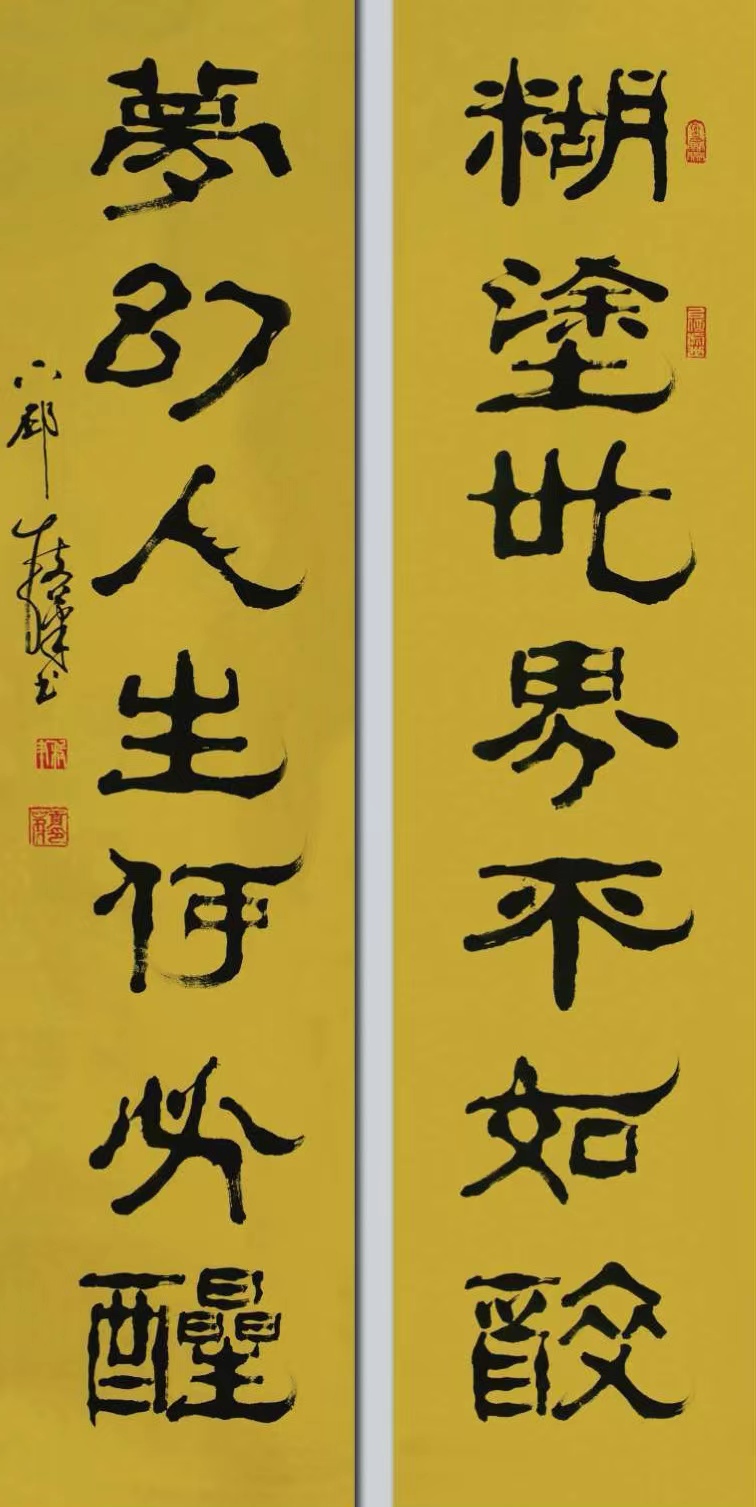 糊塗世界不如醉
夢幻人生何必醒